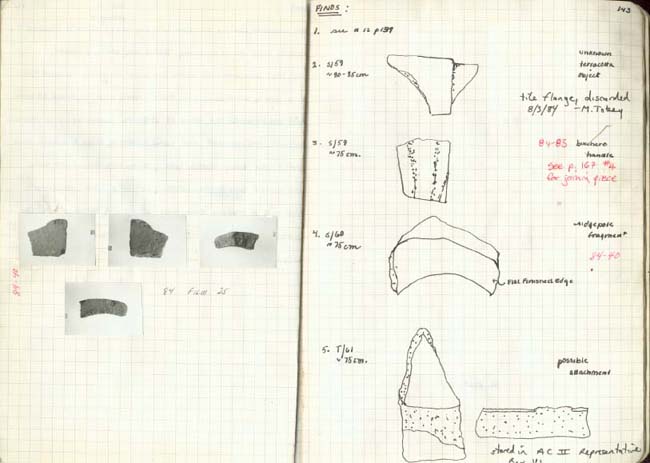 84-40
84 Film 25
FINDS:
143
1. see # 12 p 139
2. S/59
~80-85cm
unknown
terracotta
object
tile flange, discarded
8/3/84 - M. Tobey
3. S/59
~75cm.
84-85 bucchero
handle
See p. 167 #4
for joining piece
4. S/60
~75cm
ridgepole
fragment
84-40
Flat Finished Edge
5. T/61
~75cm.
possible
attachment
stored in AC II Representative